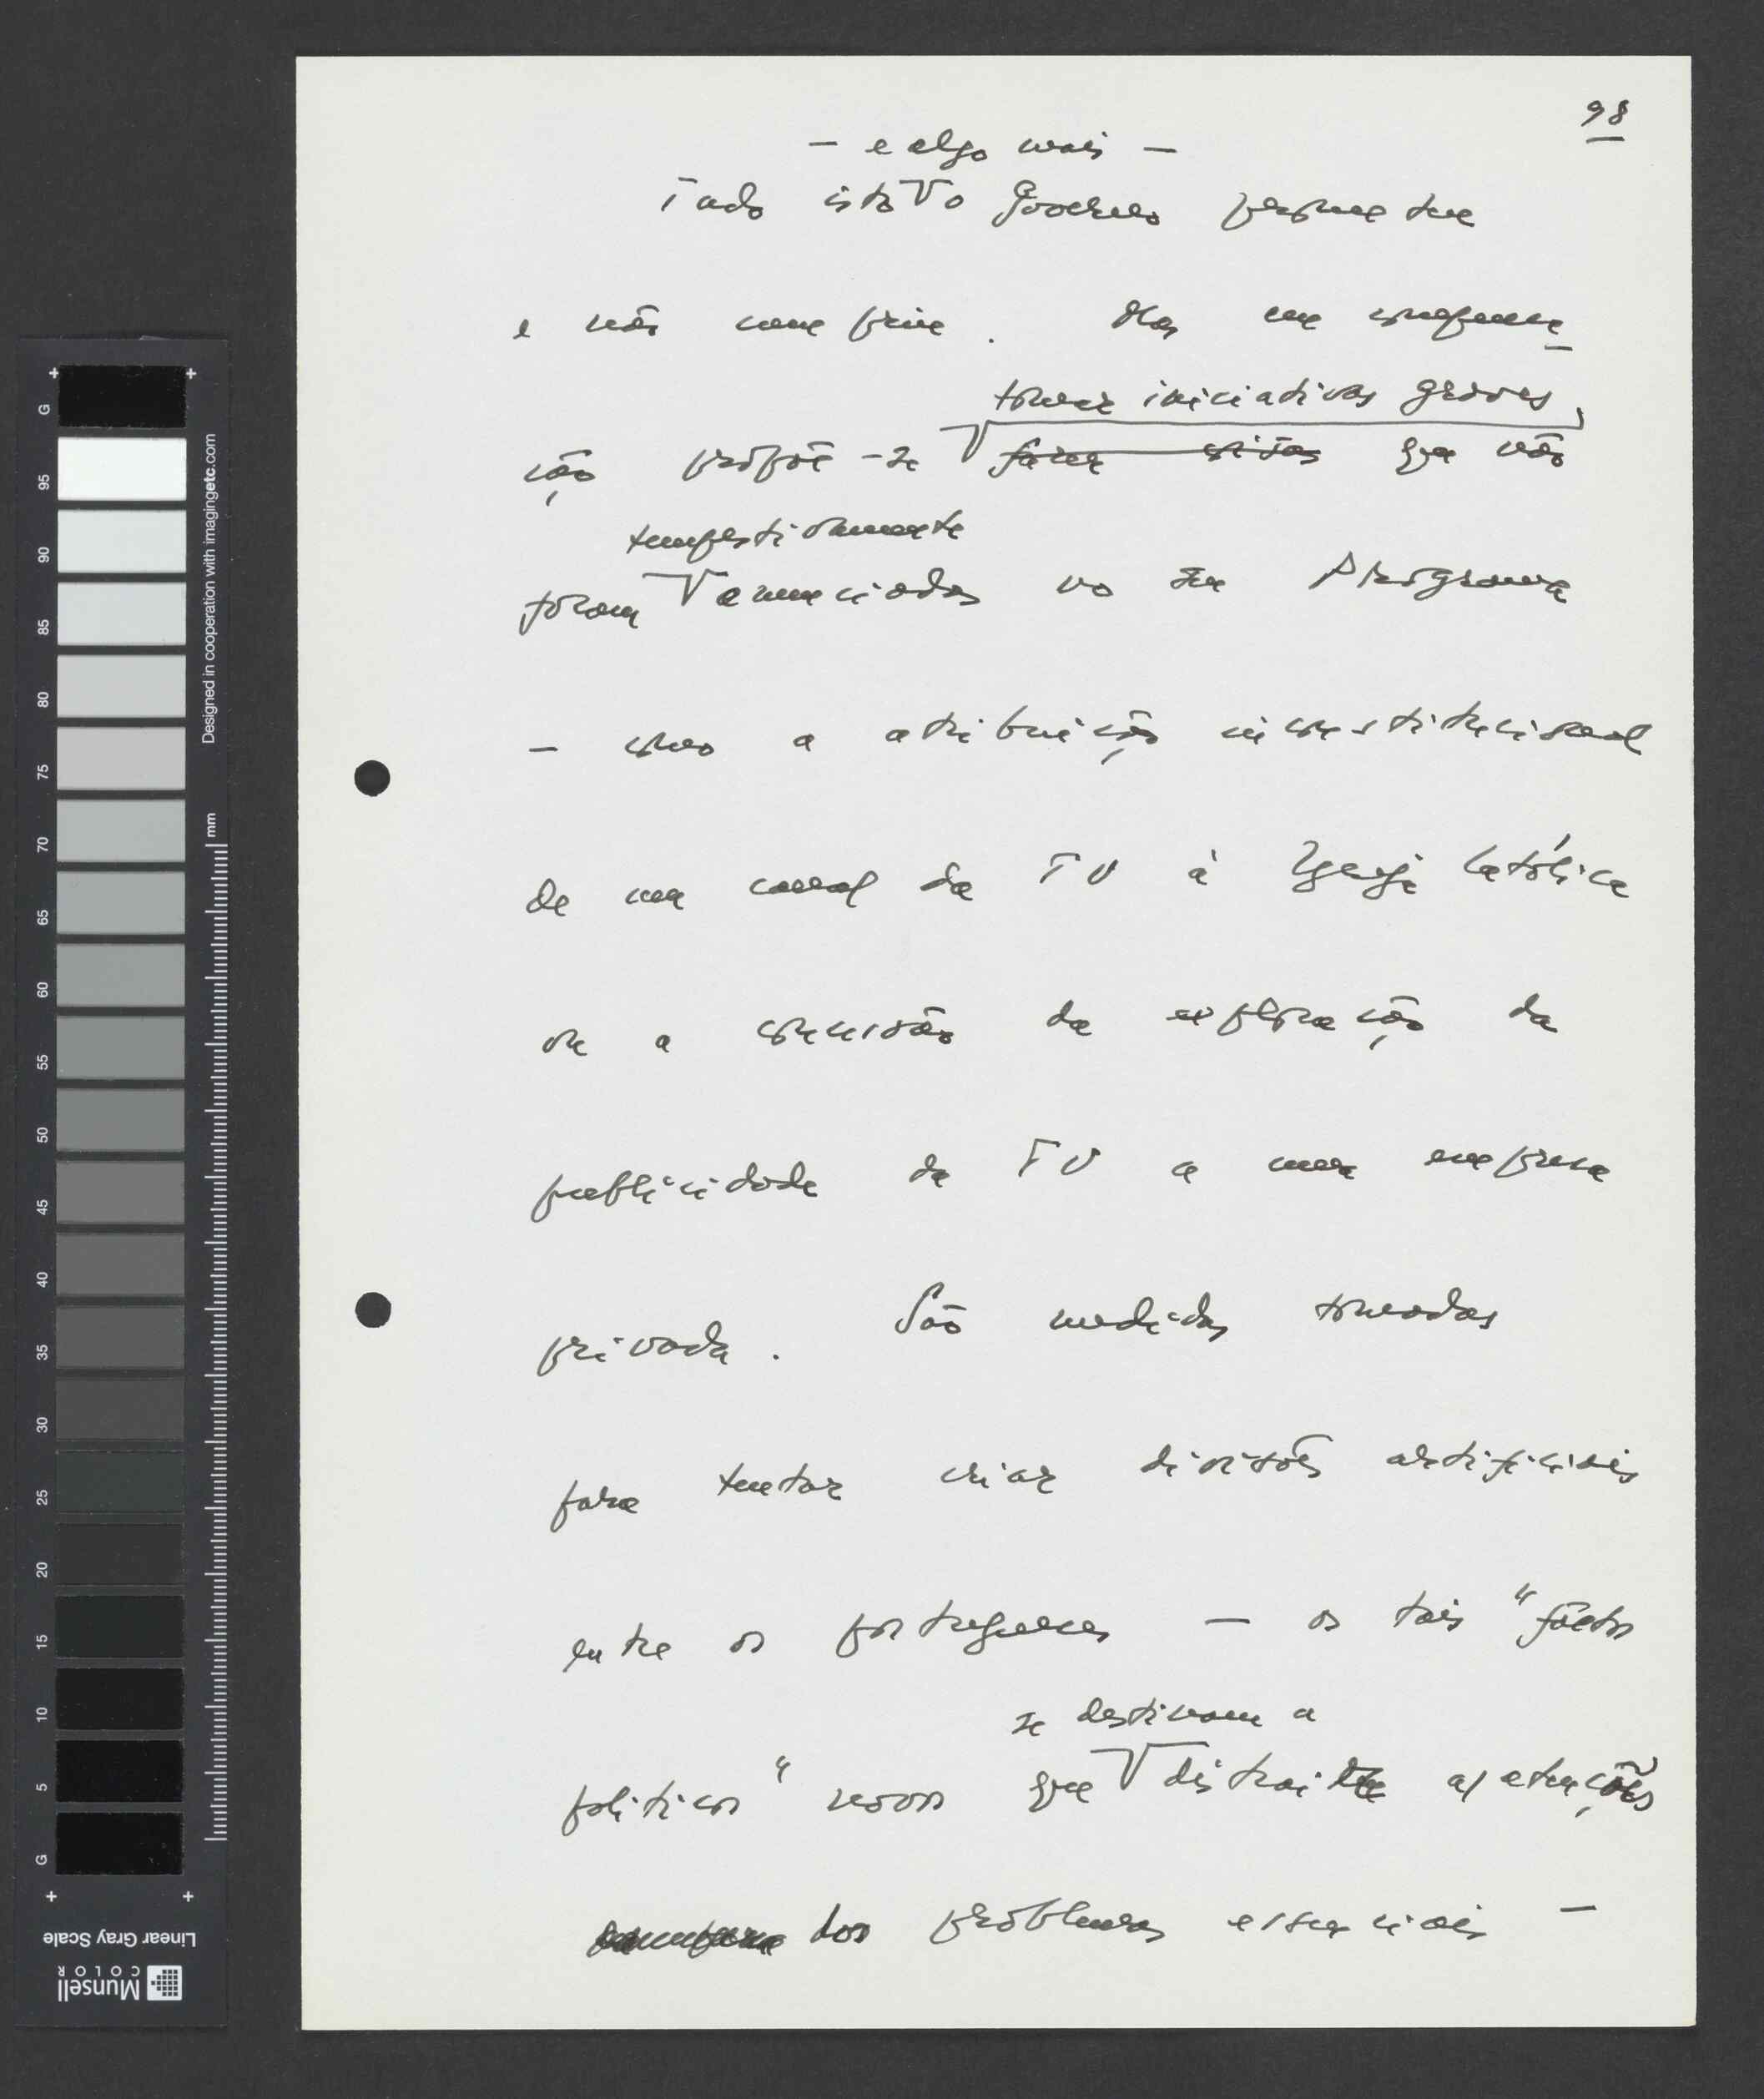 98
— e algo mais —
Tudo isto o Governo prometeu
e não cumpriu. Mas em compensa
ção propõe-se fazer coisas que não
tomar iniciativas graves,
tempestivamente
foram anunciadas no seu Programa
— como a atribuição inconstitucional
de um canal da TV à Igreja Católica
ou a concessão da exploração da
publicidade da TV a uma empresa
privada. São medidas tomadas
para tentar criar divisões artificiais
entre os portugueses — os tais "factos
se destinam a
políticos" novos que distrair as atenções
dos problemas essenciais —
G
95
90
85
80
75
70
65
60
55
50
45
40
35
30
25
20
15
10
5
G
mm
Designed in cooperation with imagingetc.com
Linear Gray Scale
Munsell
COLOR